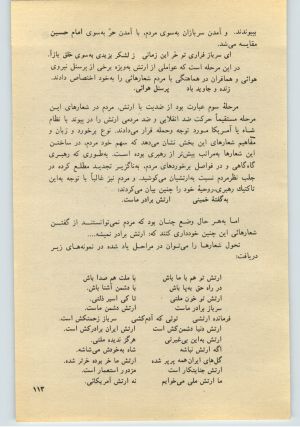 بپیوندند. و آمدن سربازان به‌سوی مردم، با آمدن حرّ به‌سوی امام حسین
مقایسه می‌شد.
ای سرباز فراری تو حر این زمانی ز لشکر یزیدی به‌سوی خلق بازآ.
در این مرحله است که عواملی از ارتش به‌ویژه برخی از پرسنل نیروی
هوائی و همافران در هماهنگی با مردم شعارهائی را به‌خود اختصاص دادند.
زنده و جاوید باد پرسنل هوائی.
مرحلهٔ سوم عبارت بود از ضدیت با ارتش. مردم در شعارهای این
مرحله مستقیماً حرکت ضد انقلابی و ضد مردمی ارتش را در پیوند با نظام
شاه یا آمریکا مورد توجه وحمله قرار می‌دادند. نوع برخورد و زبان و
مفاهیم شعارهای این بخش نشان می‌دهد که سهم خود مردم، در ساختن
این شعارها به‌مراتب بیش‌تر از رهبری بوده است. به‌طوری‌که رهبری
گاه‌گاهی و در فواصل برخوردهای مردم، به‌ناگزیر تجدید مطلع کرده در
جلب نظر مردم نسبت به‌ارتشیان می‌کوشید. و مردم نیز غالباً با توجه به‌این
تاکتیک رهبری، روحیهٔ خود را چنین بیان می‌کردند:
به‌گفتهٔ خمینی ارتش برادر ماست.
اما به‌هر حال وضع چنان بود که مردم نمی‌توانستند از گفتن
شعارهائی این چنین خودداری کنند که: ارتش برادر نمیشه....
تحول شعارها را می‌توان در مراحل یاد شده در نمونه‌های زیر
دریافت:
ارتش تو هم با ما باش با ملت هم صدا باش
در راه حق به‌پا باش با دشمن آشنا باش.
ارتش تو خون ملتی تا کی اسیر ذلتی.
سرباز برادر ماست ارتش دشمن ماست.
فرمانده ارتشی تولی که آدم‌کشی سرباز زحمتکش است.
ارتش دنیا دشمن‌کش است ارتش ایران برادرکش است.
ارتش به‌این بی‌غیرتی هرگز ندیده ملتی.
اگه ارتش نباشه شاه به‌خودش می‌شاشه.
گل‌های ایران همه پرپر شده ارتش ما خر بوده خرتر شده.
ارتش جنایتکار است مزدور استعمار است.
ما ارتش ملی می‌خوایم نه ارتش آمریکائی.
۱۱۳